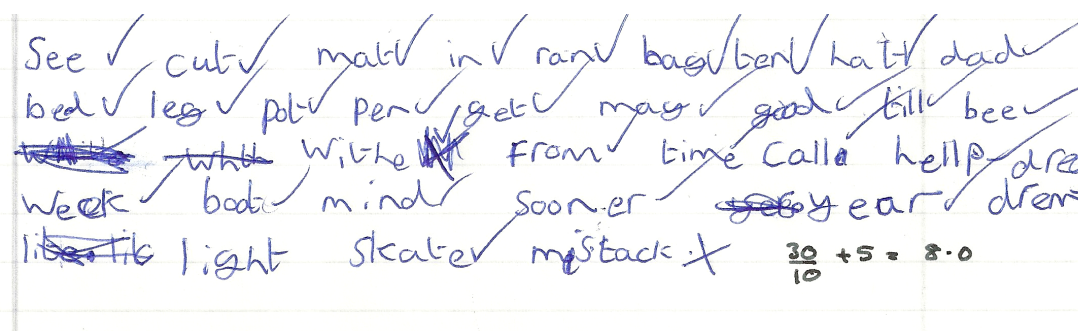 See cut mat in ran bag ten hat dad
bed leg pot pen get may good till bee
Withe From time Calla hellp
week boot mind sooner year
light skate mistack 30/10 + 5 = 8.0